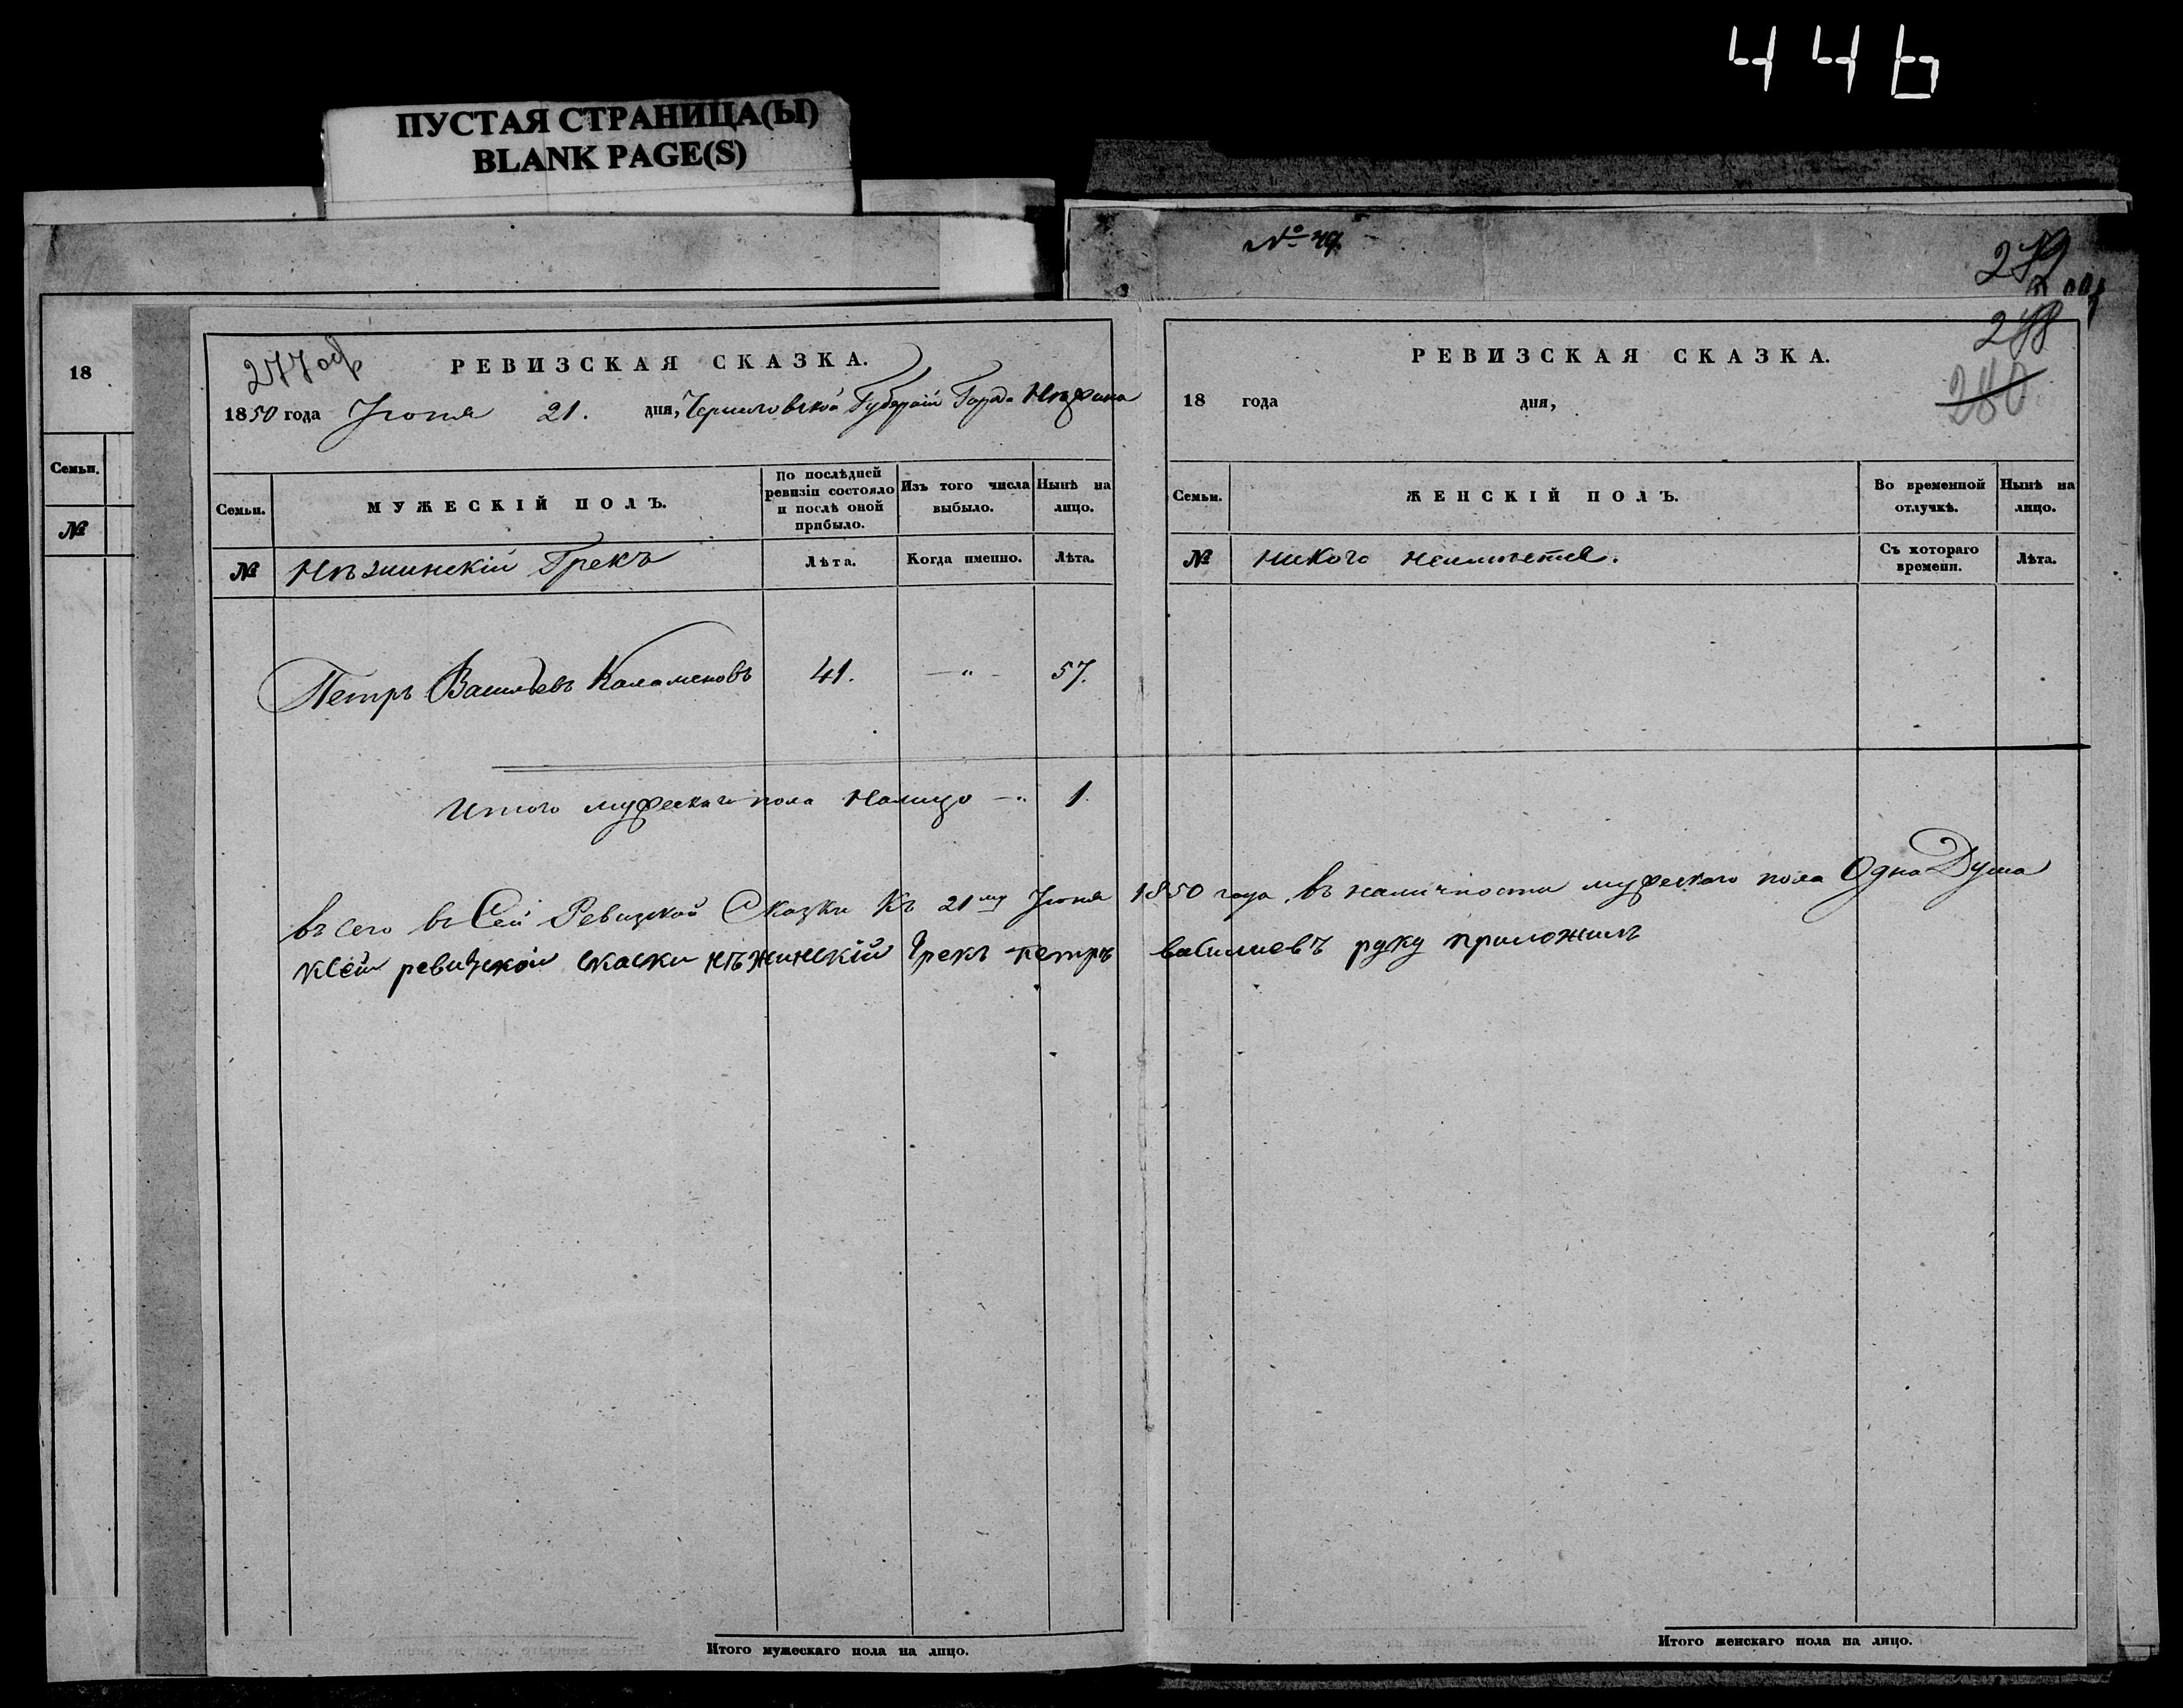 446
ПУСТАЯ СТРАНИЦА(Ы)
BLANK PAGE(S)
18
Семьи.
№
277 об
РЕВИЗСКАЯ СКАЗКА.
1850 года Іюня 21. дня, Черниговской Губерніи Города Нѣжина
Семьи.
МУЖЕСКІЙ ПОЛЪ.
По послѣдней ревизіи состояло и послѣ оной прибыло.
Изъ того числа выбыло.
Нынѣ на лицо.
№
Нѣжинскій Грекъ
Лѣта.
Когда именно.
Лѣта.
Петръ Васильевъ Каламановъ 41. — " — 57.
Итого мужескаго пола налицо — " 1.
Итого мужескаго пола на лицо.
№ 49.
279
278
280
РЕВИЗСКАЯ СКАЗКА.
18 года дня,
Семьи.
ЖЕНСКІЙ ПОЛЪ.
Во временной отлучкѣ.
Нынѣ на лицо.
№
никого неимѣется.
Съ котораго времени.
Лѣта.
въ сего въ Сей Ревизской Сказки Къ 21му Іюня 1850 года, въ наличности мужескаго пола Одна Душа
ксей ревизской скаски нѣжинскій Грекъ петръ василиевъ руку приложилъ
Итого женскаго пола на лицо.